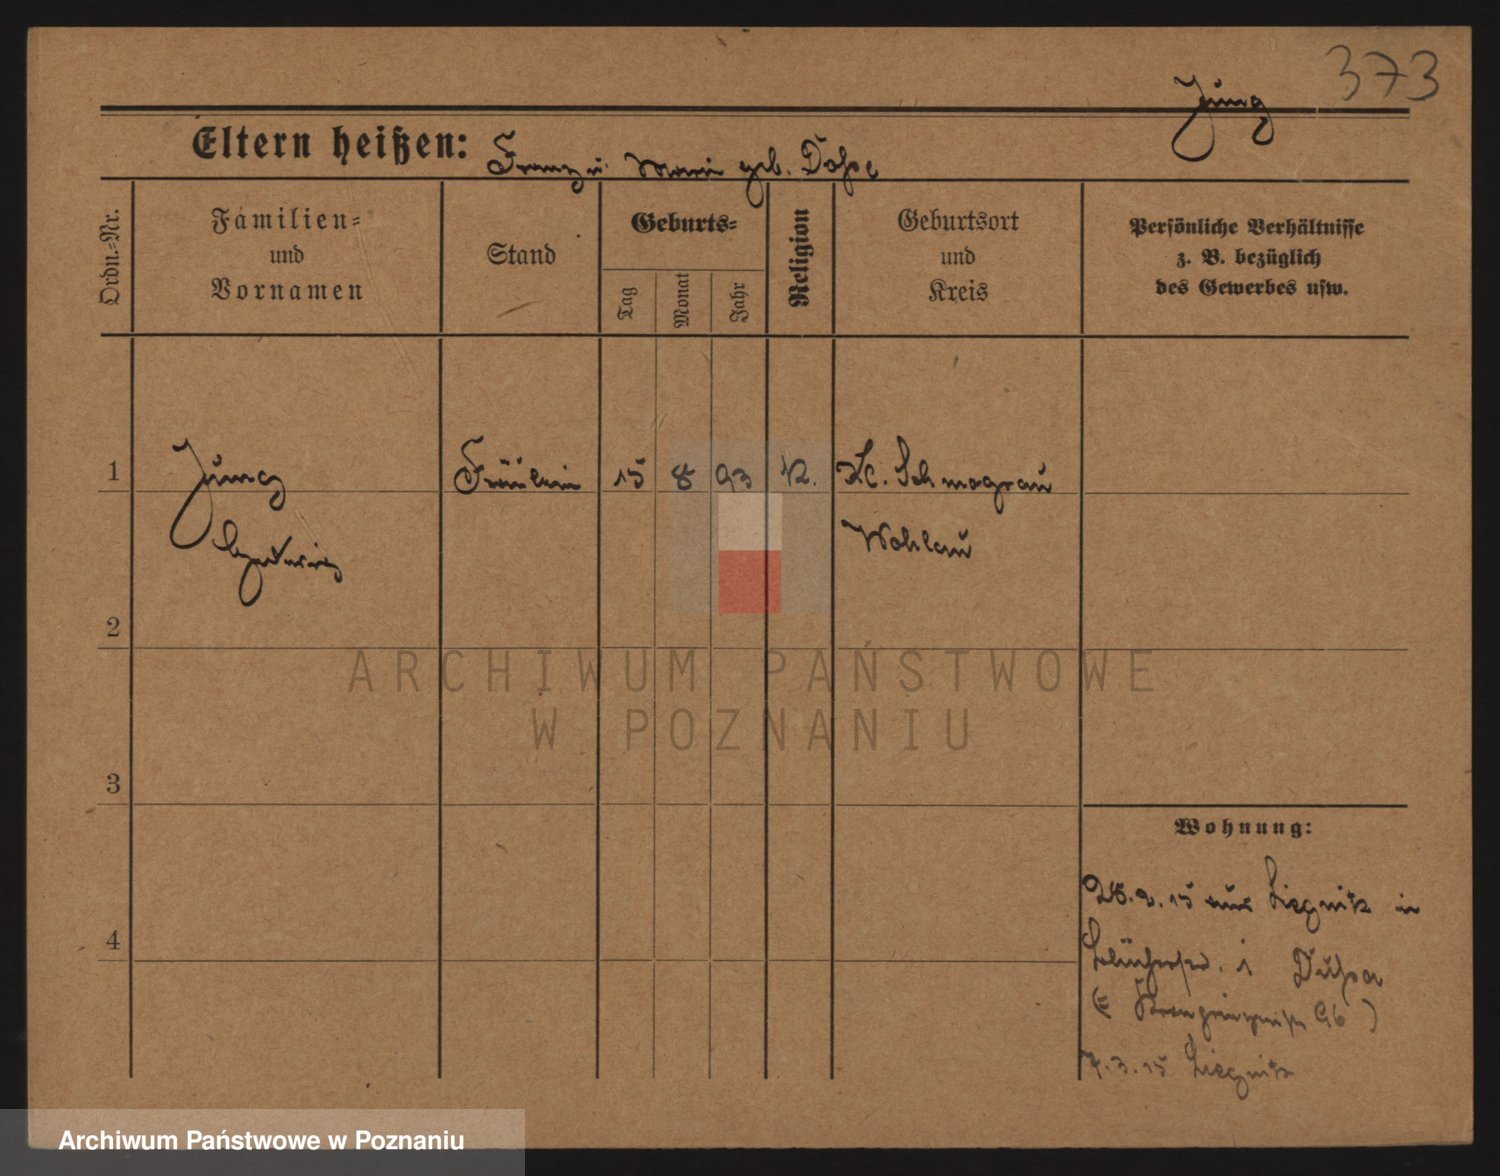 373
Jung
Eltern heißen: Franz u. Marie geb.
Ordn.-Nr.
Familien=
und
Vornamen
Stand
Geburts=
Tag
Monat
Jahr
Religion
Geburtsort
und
Kreis
Persönliche Verhältnisse
z. B. bezüglich
des Gewerbes usw.
1 Jung Fräulein 15 8 93 K. Kl. Schmograu
Hedwig Wohlau
2
3
4
Wohnung:
28.2.15 aus Liegnitz in
7.3.15 Liegnitz
ARCHIWUM PAŃSTWOWE
W POZNANIU
Archiwum Państwowe w Poznaniu